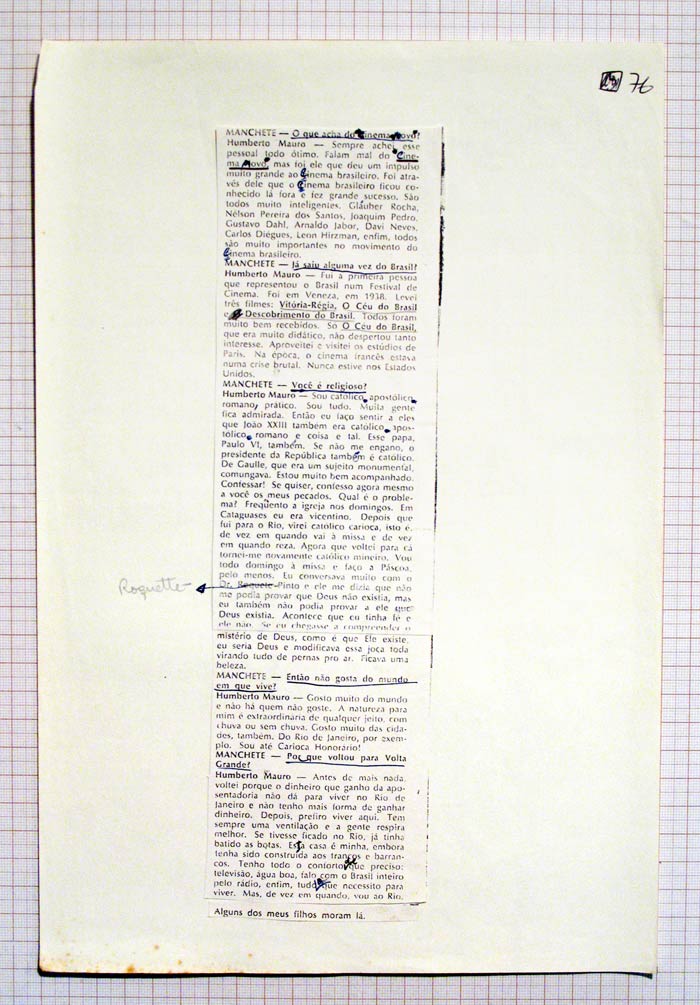 29 76
MANCHETE — O que acha do Cinema Novo?
Humberto Mauro — Sempre achei esse
pessoal todo ótimo. Falam mal do Cine-
ma Novo, mas foi ele que deu um impulso
muito grande ao Cinema brasileiro. Foi atra-
vés dele que o Cinema brasileiro ficou co-
nhecido lá fora e fez grande sucesso. São
todos muito inteligentes. Gláuber Rocha,
Nélson Pereira dos Santos, Joaquim Pedro,
Gustavo Dahl, Arnaldo Jabor, Davi Neves,
Carlos Diégues, Leon Hirzman, enfim, todos
são muito importantes no movimento do
Cinema brasileiro.
MANCHETE — Já saiu alguma vez do Brasil?
Humberto Mauro — Fui a primeira pessoa
que representou o Brasil num Festival de
Cinema. Foi em Veneza, em 1938. Levei
três filmes: Vitória-Régia, O Céu do Brasil
e Descobrimento do Brasil. Todos foram
muito bem recebidos. Só O Céu do Brasil,
que era muito didático, não despertou tanto
interesse. Aproveitei e visitei os estúdios de
Paris. Na época, o cinema francês estava
numa crise brutal. Nunca estive nos Estados
Unidos.
MANCHETE — Você é religioso?
Humberto Mauro — Sou católico, apostólico,
romano, prático. Sou tudo. Muita gente
fica admirada. Então eu faço sentir a eles
que João XXIII também era católico, apos-
tólico, romano e coisa e tal. Esse papa,
Paulo VI, também. Se não me engano, o
presidente da República também é católico.
De Gaulle, que era um sujeito monumental,
comungava. Estou muito bem acompanhado.
Confessar! Se quiser, confesso agora mesmo
a você os meus pecados. Qual é o proble-
ma? Freqüento a igreja nos domingos. Em
Cataguases eu era vicentino. Depois que
fui para o Rio, virei católico carioca, isto é,
de vez em quando vai à missa e de vez
em quando reza. Agora que voltei para cá
tornei-me novamente católico mineiro. Vou
todo domingo à missa e faço a Páscoa,
pelo menos. Eu conversava muito com o
Roquette- Dr. Roquete-Pinto e ele me dizia que não
me podia provar que Deus não existia, mas
eu também não podia provar a ele que
Deus existia. Acontece que eu tinha fé e
ele não. Se eu chegasse a compreender o
mistério de Deus, como é que Ele existe,
eu seria Deus e modificava essa joça toda
virando tudo de pernas pro ar. Ficava uma
beleza.
MANCHETE — Então não gosta do mundo
em que vive?
Humberto Mauro — Gosto muito do mundo
e não há quem não goste. A natureza para
mim é extraordinária de qualquer jeito, com
chuva ou sem chuva. Gosto muito das cida-
des, também. Do Rio de Janeiro, por exem-
plo. Sou até Carioca Honorário!
MANCHETE — Por que voltou para Volta
Grande?
Humberto Mauro — Antes de mais nada,
voltei porque o dinheiro que ganho da apo-
sentadoria não dá para viver no Rio de
Janeiro e não tenho mais forma de ganhar
dinheiro. Depois, prefiro viver aqui. Tem
sempre uma ventilação e a gente respira
melhor. Se tivesse ficado no Rio, já tinha
batido as botas. Esta casa é minha, embora
tenha sido construída aos trancos e barran-
cos. Tenho todo o conforto que preciso:
televisão, água boa, falo com o Brasil inteiro
pelo rádio, enfim, tudo que necessito para
viver. Mas, de vez em quando, vou ao Rio.
Alguns dos meus filhos moram lá.